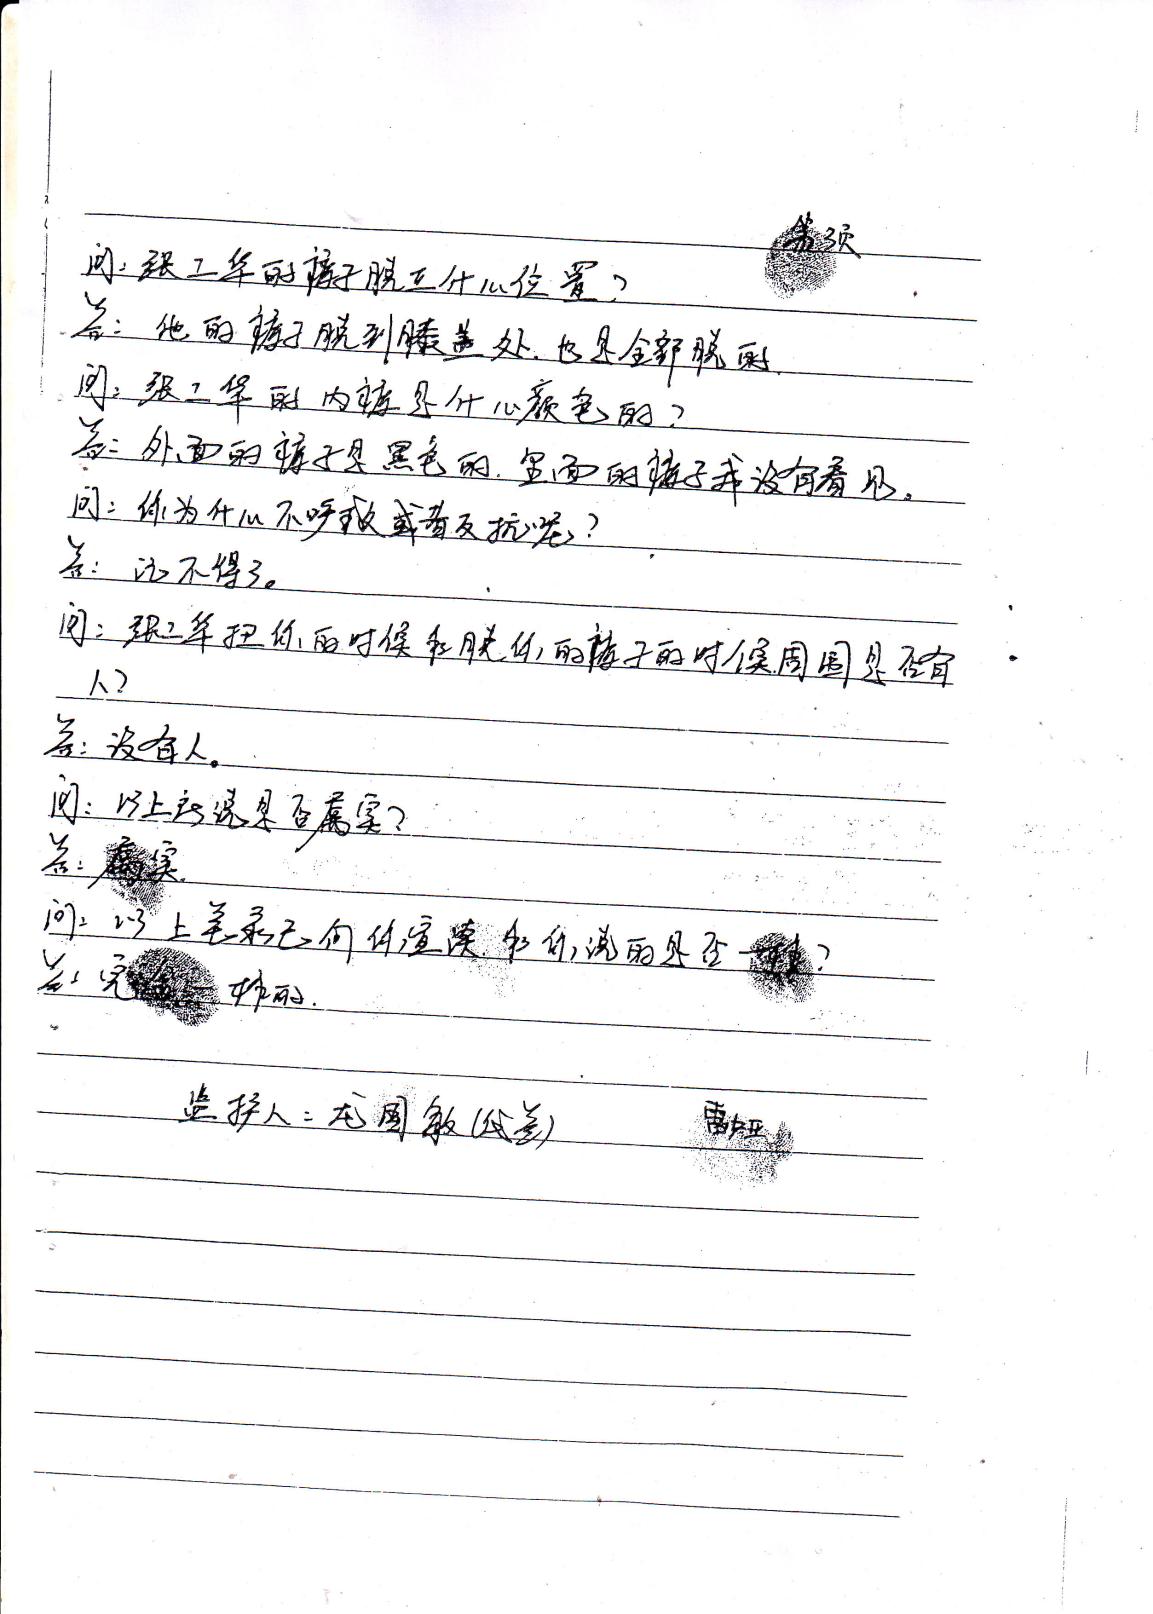 第3页
问：张二华的裤子脱在什么位置？
答：他的裤子脱到膝盖处，也是全部脱的.
问：张二华的内裤是什么颜色的？
答：外面的裤子是黑色的，里面的裤子我没有看见。
问：你为什么不呼救或者反抗呢？
答：记不得了。
问：张二华扭你的时候和脱你的裤子的时候周围是否有
人？
答：没有人。
问：以上所说是否属实？
答：属实.
问：以上笔录已向你宣读，和你说的是否一样？
答：完全一样的.
监护人：龙国敏(代签)